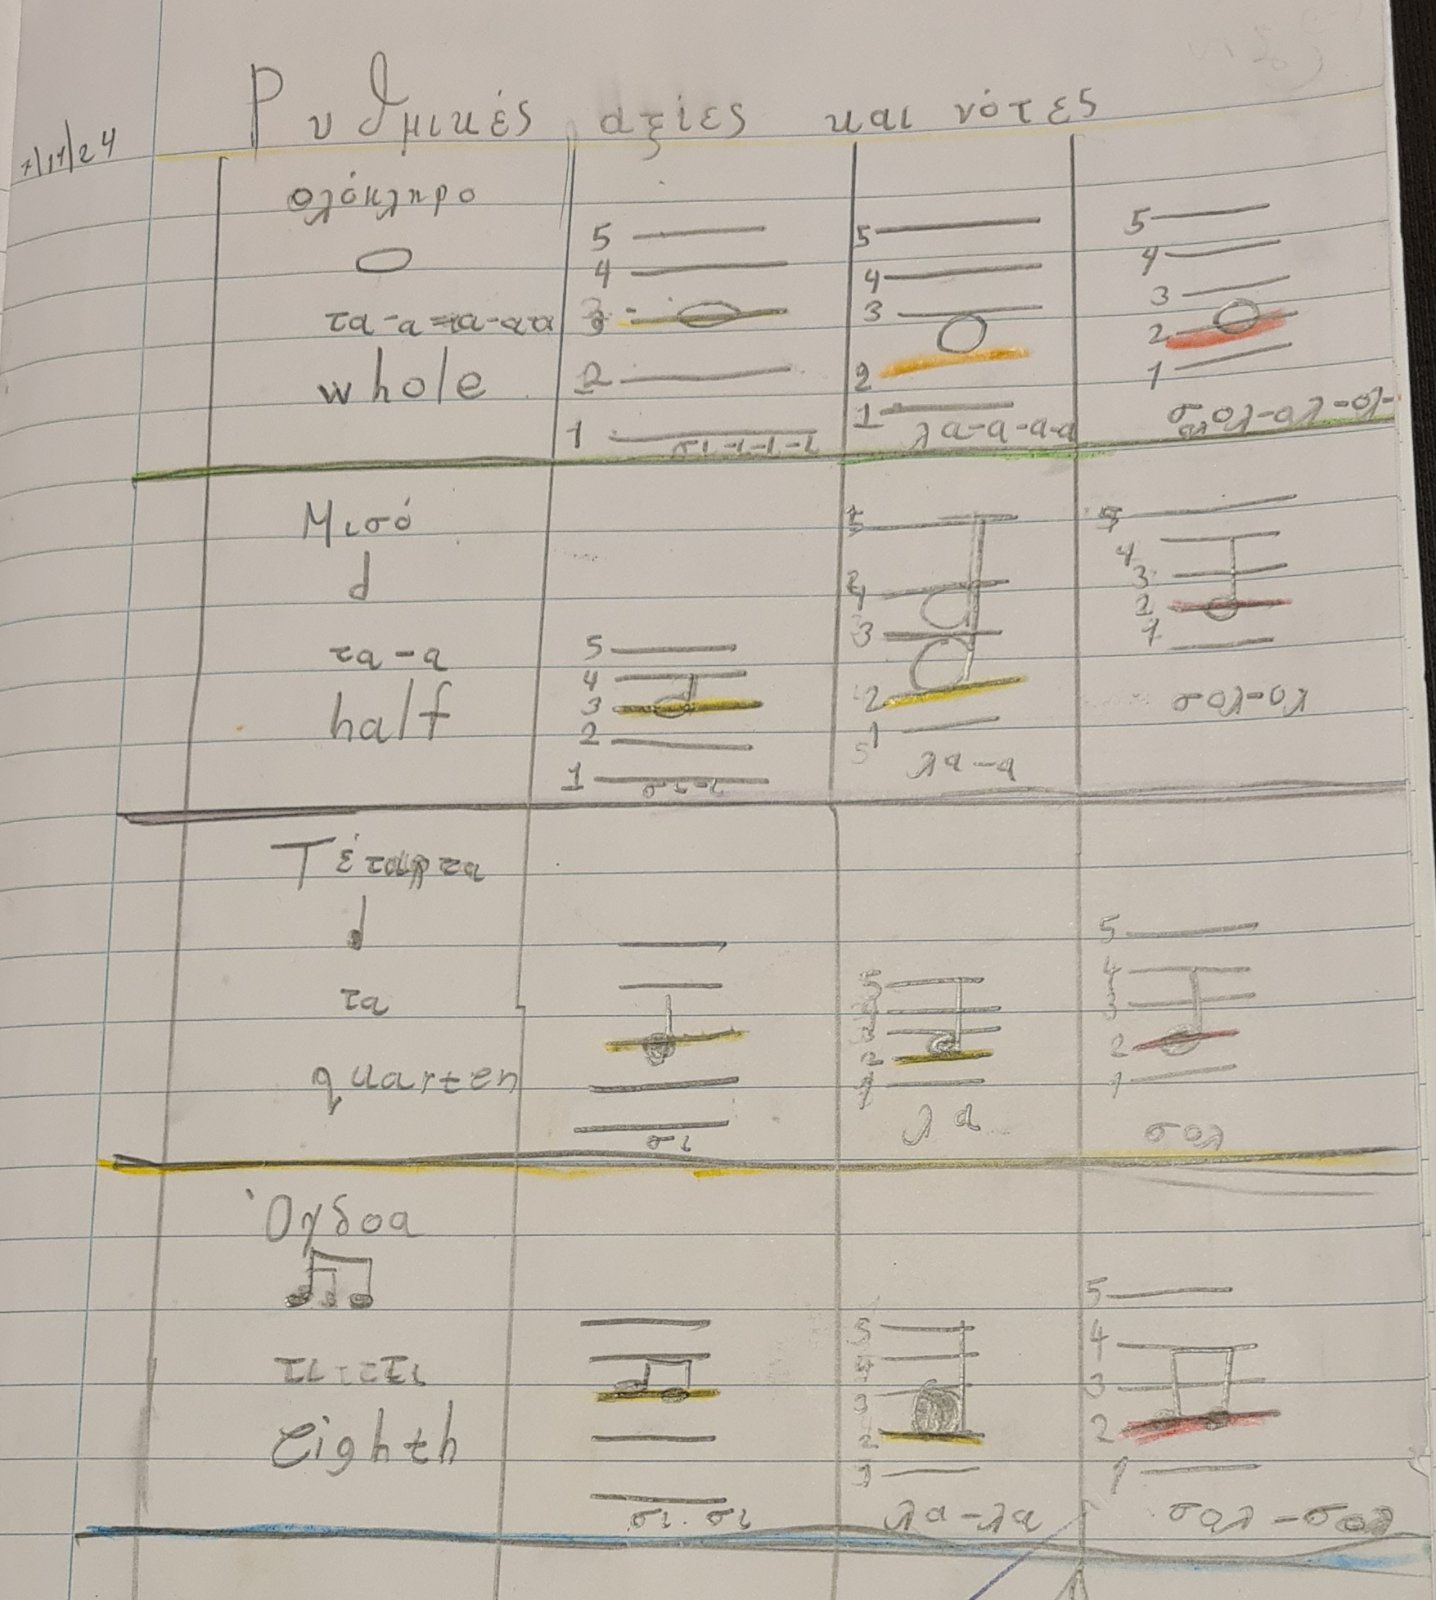 Ρυθμικές αξίες και νότες
7/11/24
ολόκληρο
τα-α-α-αα
whole
5
4
3
2
1
σι-ι-ι-ι
5
4
3
2
1
λα-α-α-α
5
4
3
2
1
Μισό
τα-α
half
5
4
3
2
1
σι-ι
5
4
3
2
1
5
λα-α
5
4
3
2
1
σολ-ολ
Τέταρτα
τα
quarter
σι
5
2
1
λα
5
4
3
2
1
σολ
Όγδοα
Eighth
σι-σι
5
4
3
2
1
λα-λα
5
4
3
2
1
σολ-σολ